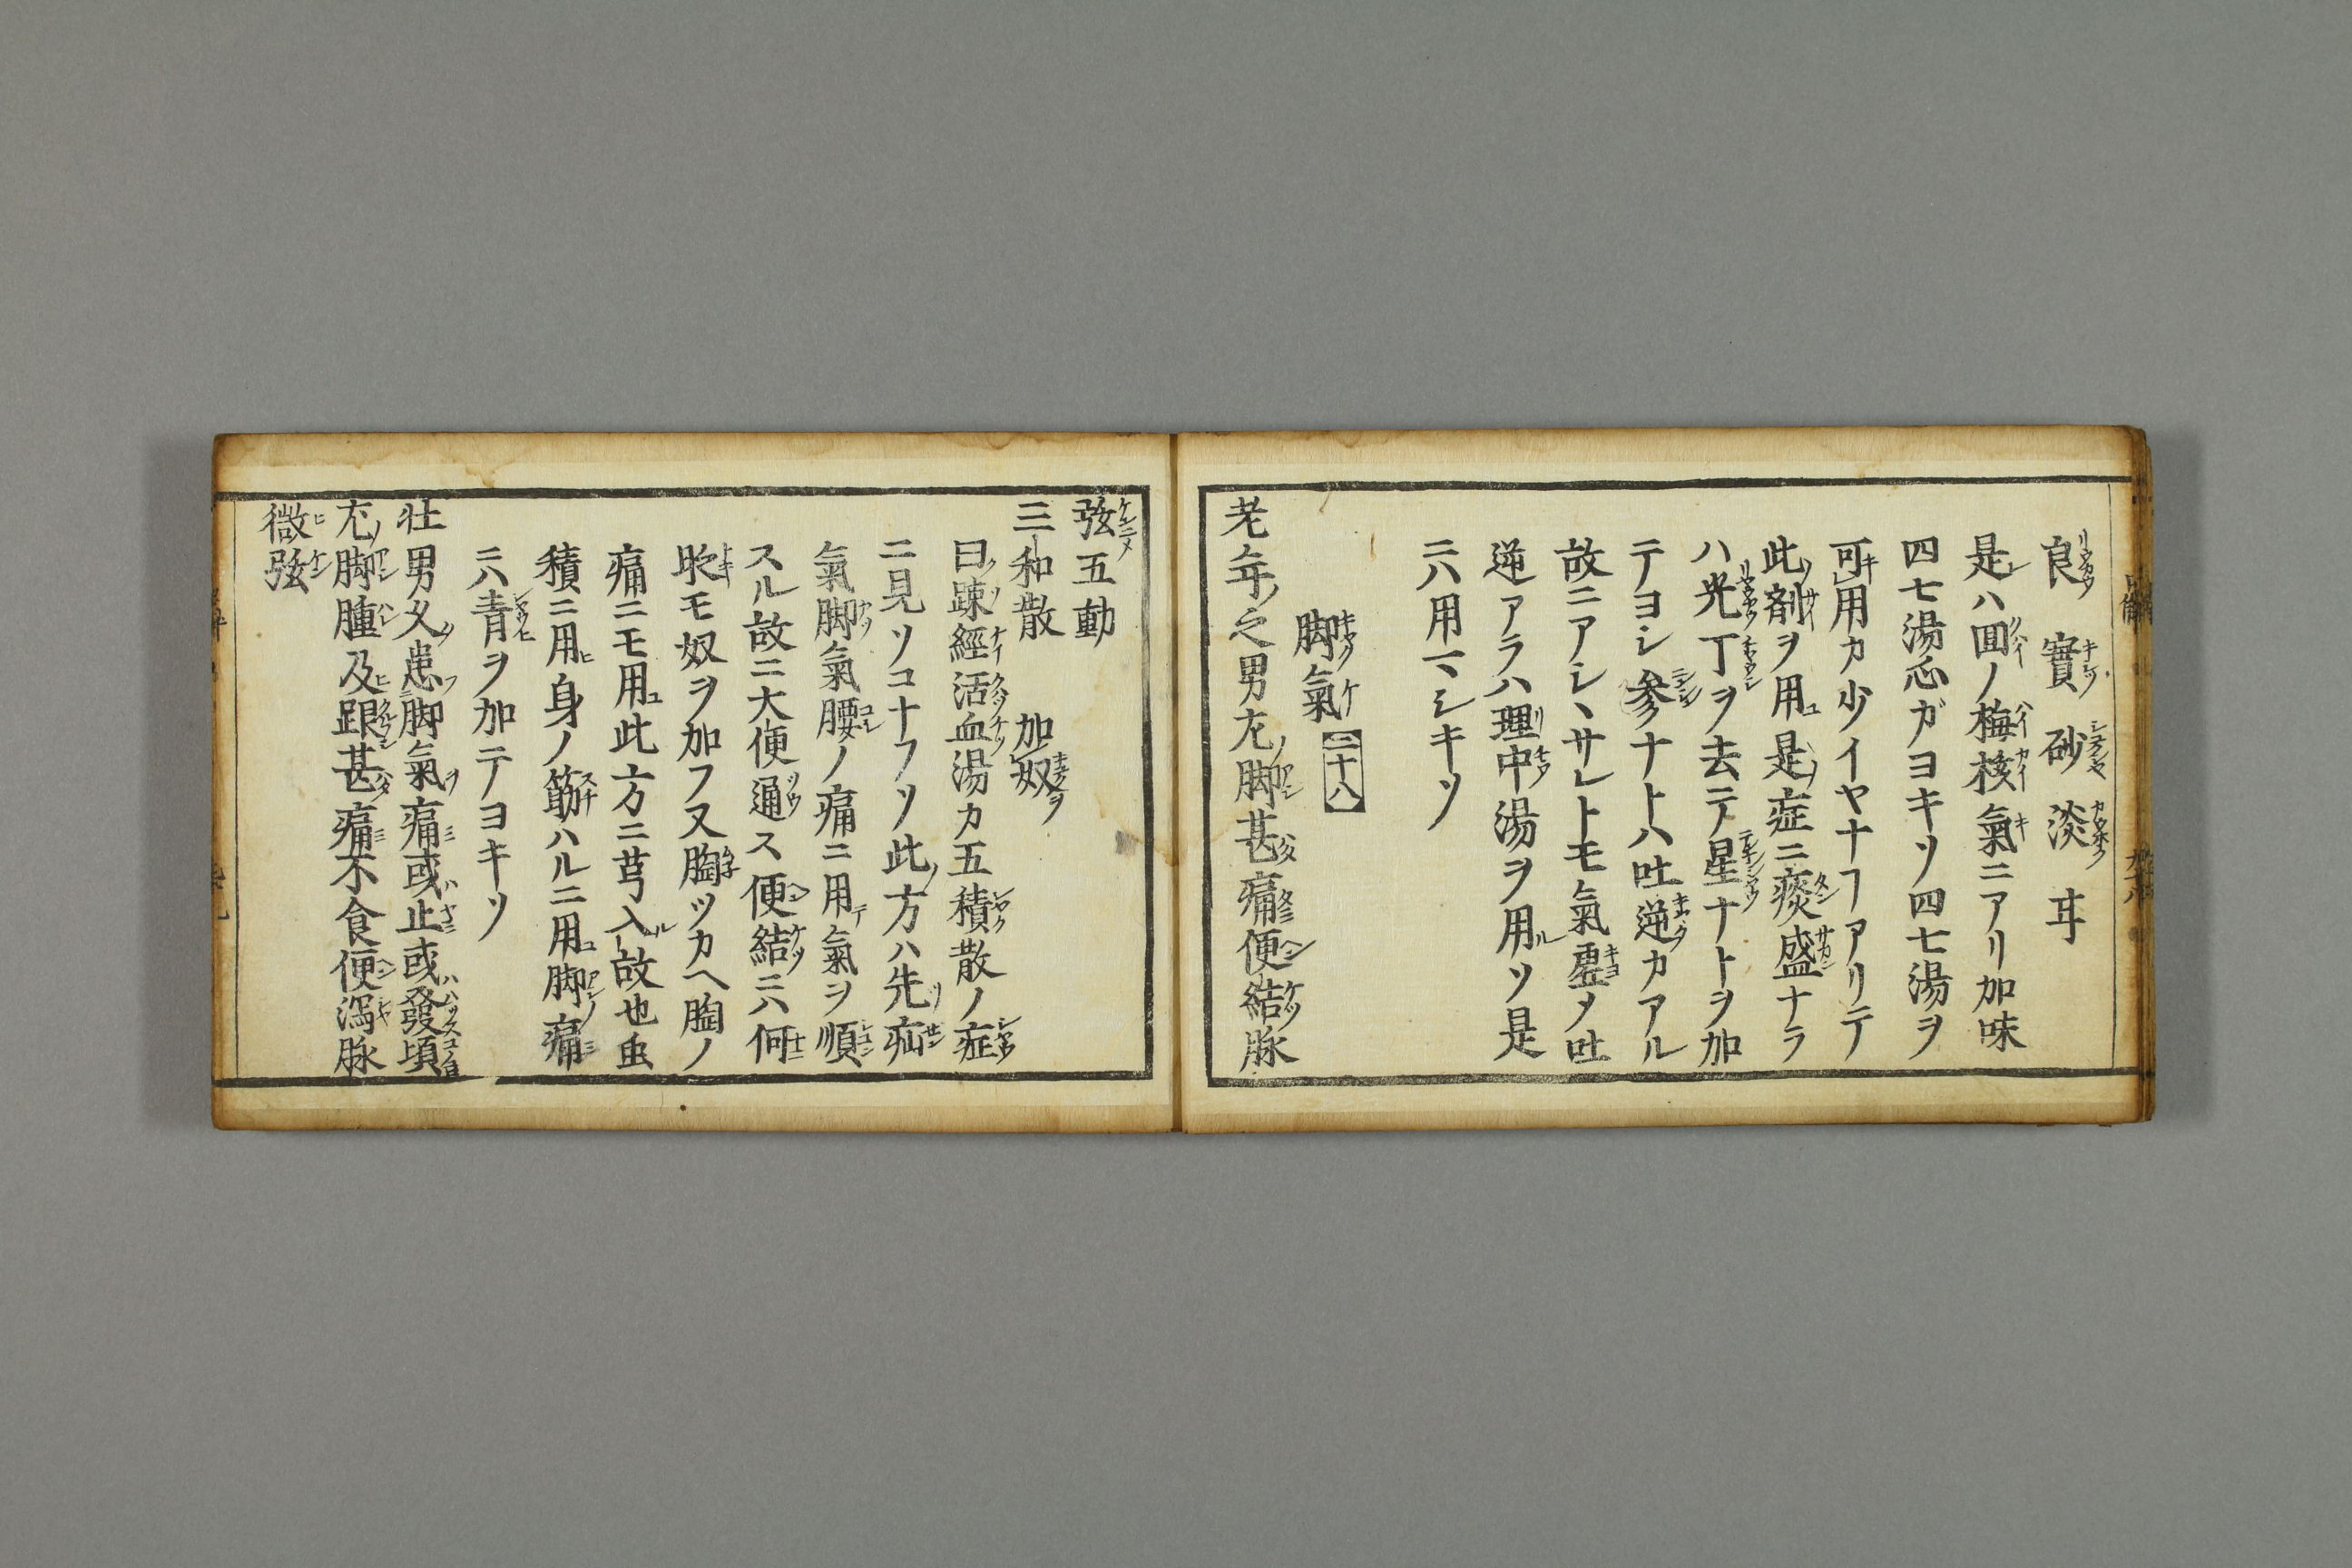 良 實 砂 淡 耳
是ハ囬ノ梅核氣ニアリ加味
四七湯忩ガヨキソ四七湯ヲ
可用カ少イヤナヿアリテ
此剤ヲ用是症ニ痰盛ナラ
ハ光丁ヲ去テ星ナトヲ加
テヨシ参ナトハ吐逆カアル
故ニアシヽサレトモ氣虚メ吐
逆アラハ理中湯ヲ用ソ是
ニハ用マシキソ
脚氣【二十八】
老年之男左脚甚痛便結脉
弦五動
三和散 加奴
曰踈經活血湯カ五積散ノ症
ニ見ソコナフソ此方ハ先疝
氣脚氣腰ノ痛ニ用氣ヲ順
スル故ニ大便通ス便結ニハ何
時モ奴ヲ加フ又胸ツカヘ胸ノ
痛ニモ用此方ニ芎入故也虫
積ニ用身ノ筋ハルニ用脚痛
ニハ青ヲ加テヨキソ
壮男久患脚氣痛或止或發頃
左脚腫及跟甚痛不食便瀉脉
微弦